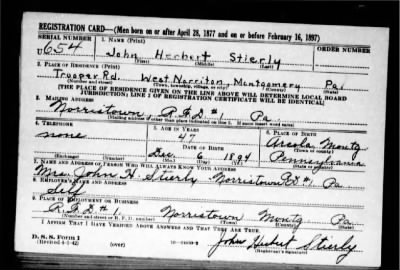 REGISTRATION CARD—(Men born on or after April 28, 1877 and on or before February 16, 1897)
SERIAL NUMBER 1. NAME (Print) ORDER NUMBER
U 654 John Herbert Stierly
(First) (Middle) (Last)
2. PLACE OF RESIDENCE (Print)
Trooper Rd. West Norriton Montgomery Pa.
(Number and street) (Town, township, village, or city) (County) (State)
[THE PLACE OF RESIDENCE GIVEN ON THE LINE ABOVE WILL DETERMINE LOCAL BOARD
JURISDICTION; LINE 2 OF REGISTRATION CERTIFICATE WILL BE IDENTICAL]
3. MAILING ADDRESS
Norristown R.F.D. #1 Pa.
[Mailing address if other than place indicated on line 2. If same insert word same]
4. TELEPHONE 5. AGE IN YEARS 6. PLACE OF BIRTH
none 47 Arcola Montg
DATE OF BIRTH (Town or county)
Dec. 6 1894 Pennsylvania
(Exchange) (Number) (Mo.) (Day) (Yr.) (State or country)
7. NAME AND ADDRESS OF PERSON WHO WILL ALWAYS KNOW YOUR ADDRESS
Mrs. John H. Stierly Norristown #1 Pa
8. EMPLOYER'S NAME AND ADDRESS
Self
9. PLACE OF EMPLOYMENT OR BUSINESS
R.F.D. #1. Norristown Montg Pa
(Number and street or R. F. D. number) (Town) (County) (State)
I AFFIRM THAT I HAVE VERIFIED ABOVE ANSWERS AND THAT THEY ARE TRUE.
D. S. S. Form 1
(Revised 4-1-42) (over) John Herbert Stierly
(Registrant's signature)